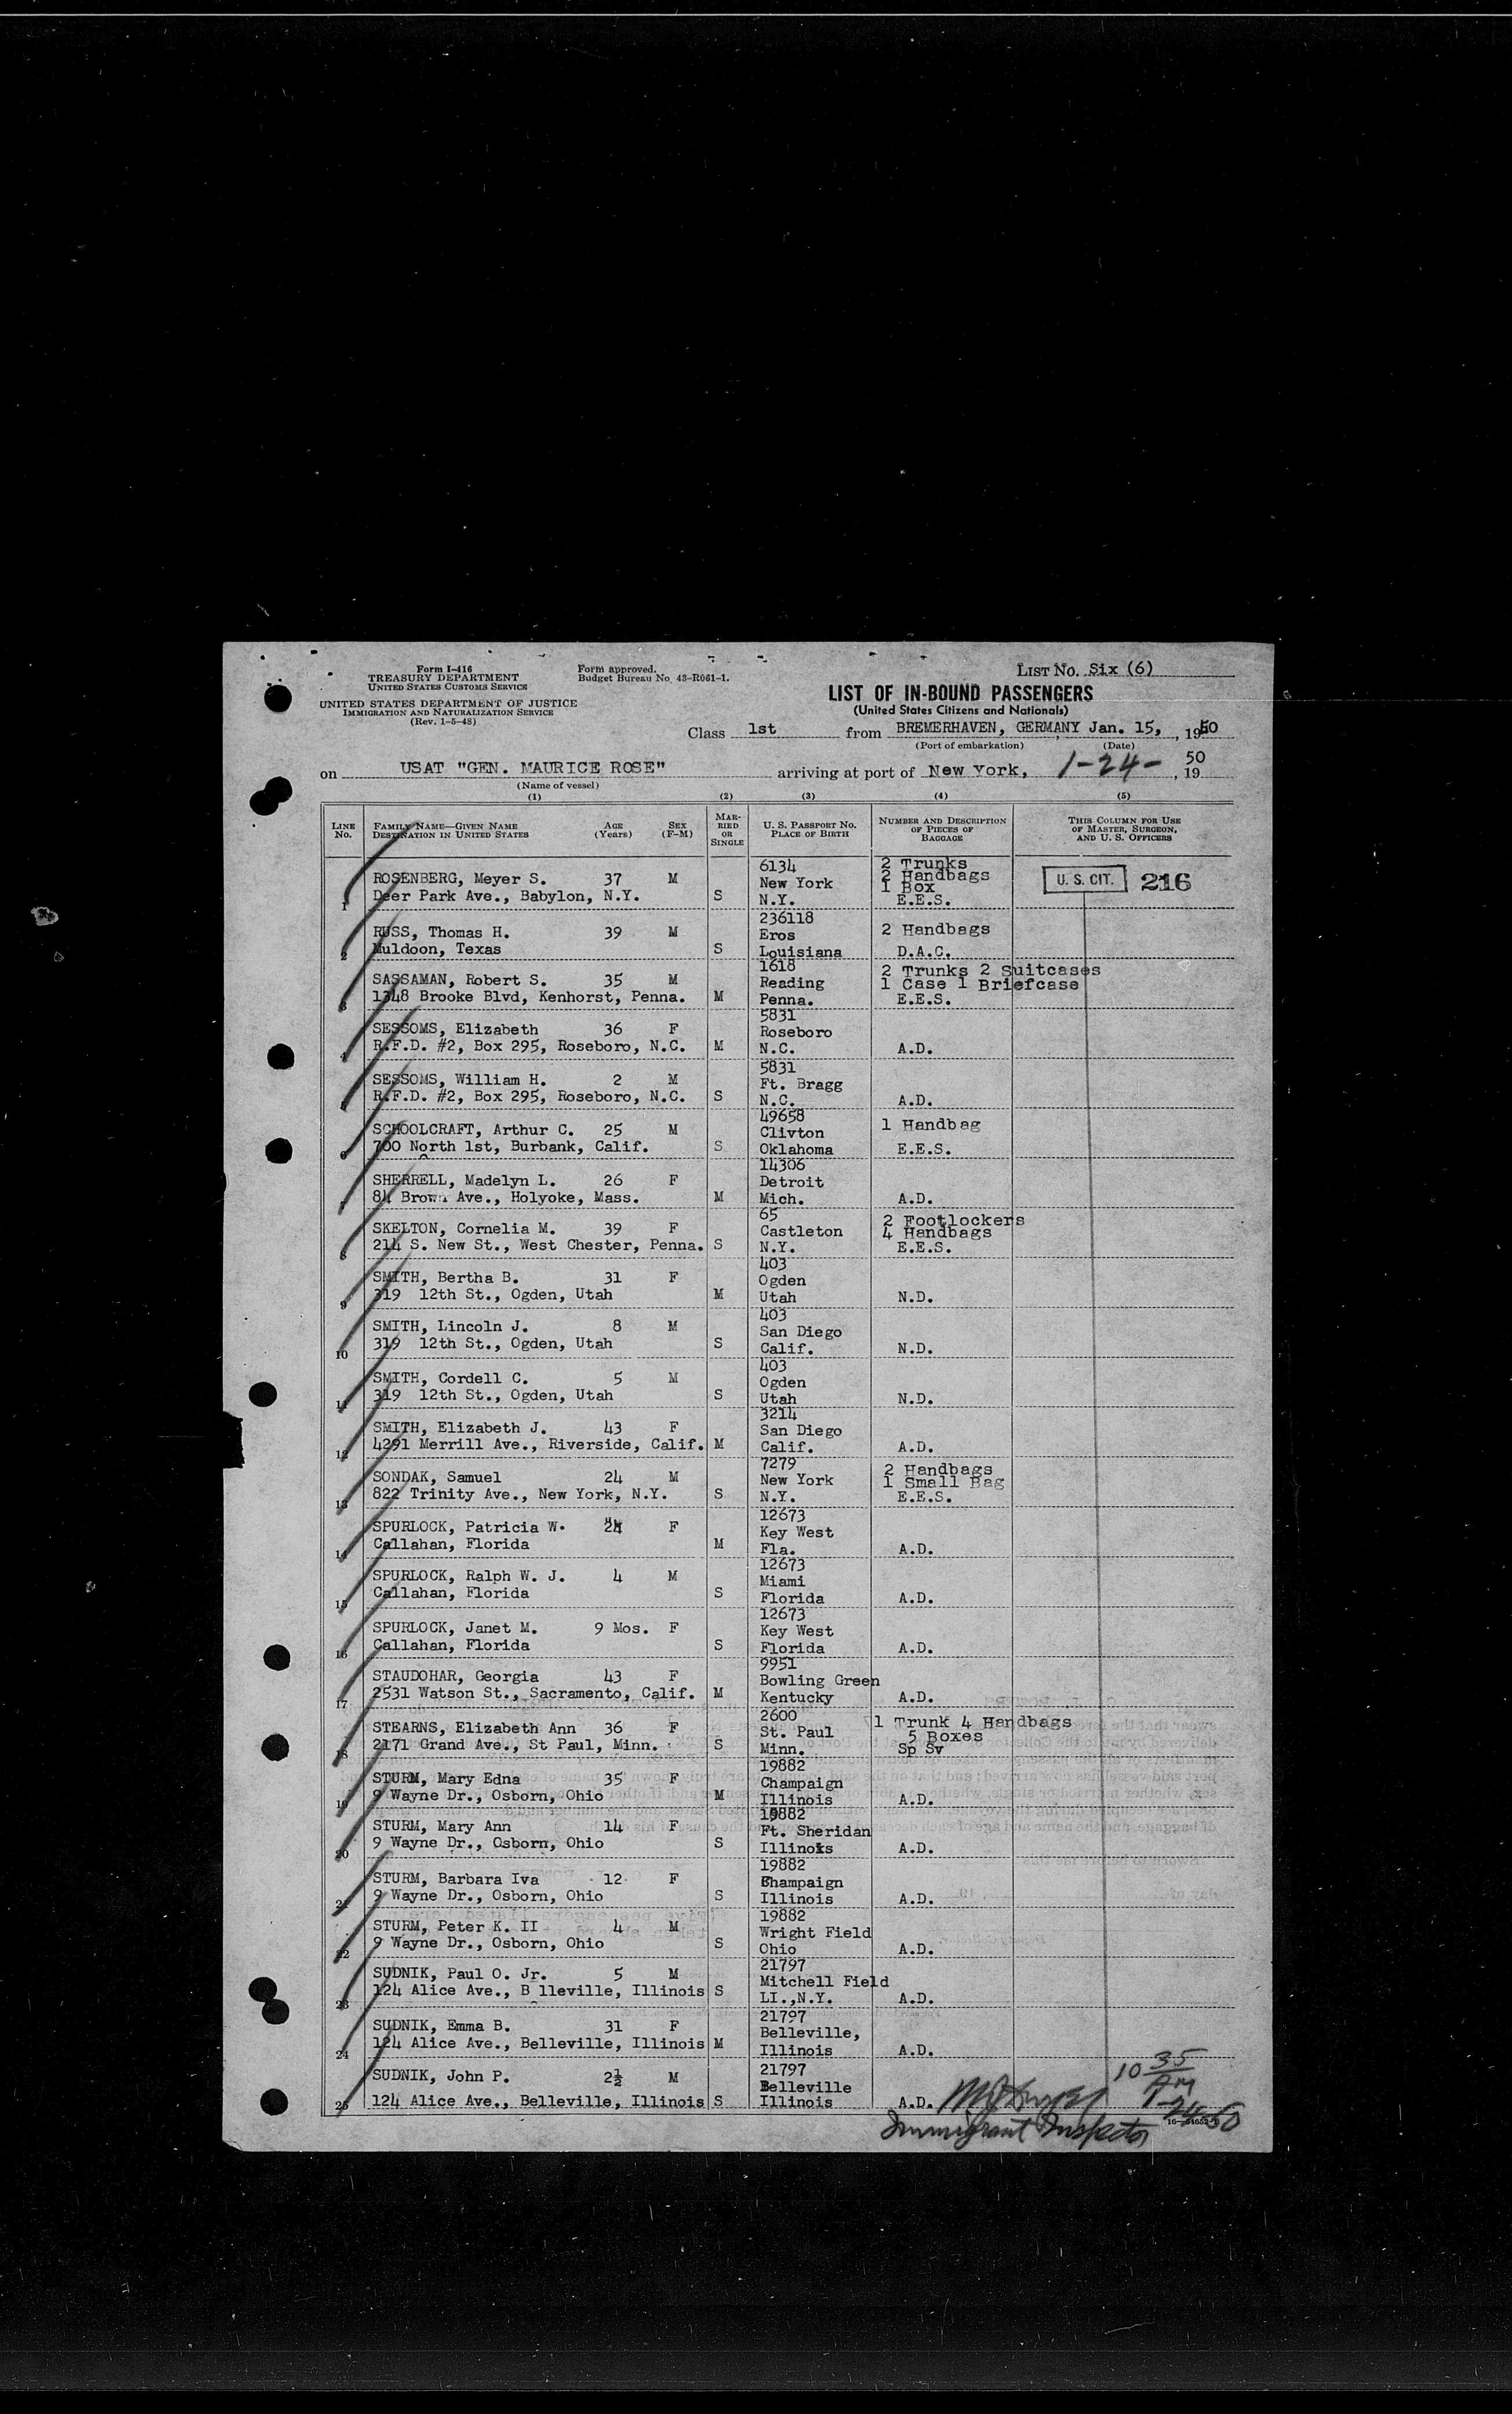 Form I-416
TREASURY DEPARTMENT
UNITED STATES CUSTOMS SERVICE
UNITED STATES DEPARTMENT OF JUSTICE
IMMIGRATION AND NATURALIZATION SERVICE
(Rev. 1-5-48)
Form approved.
Budget Bureau No. 43-R061-1.
LIST NO. Six (6)
LIST OF IN-BOUND PASSENGERS
(United States Citizens and Nationals)
Class 1st from BREMERHAVEN, GERMANY Jan. 15, , 1950
(Port of embarkation) (Date)
on USAT "GEN. MAURICE ROSE" arriving at port of New York, 1-24- , 1950
(Name of vessel)
(1) (2) (3) (4) (5)
LINE NO. FAMILY NAME—GIVEN NAME DESTINATION IN UNITED STATES AGE (Years) SEX (F-M) MARRIED OR SINGLE U. S. PASSPORT NO. PLACE OF BIRTH NUMBER AND DESCRIPTION OF PIECES OF BAGGAGE THIS COLUMN FOR USE OF MASTER, SURGEON, AND U. S. OFFICERS
6134 2 Trunks
ROSENBERG, Meyer S. 37 M New York 2 Handbags U. S. CIT. 216
1 Box
1 Deer Park Ave., Babylon, N.Y. S N.Y. E.E.S.
236118
RUSS, Thomas H. 39 M Eros 2 Handbags
2 Muldoon, Texas S Louisiana D.A.C.
1618 2 Trunks 2 Suitcases
SASSAMAN, Robert S. 35 M Reading 1 Case 1 Briefcase
3 1348 Brooke Blvd, Kenhorst, Penna. M Penna. E.E.S.
5831
SESSOMS, Elizabeth 36 F Roseboro
4 R.F.D. #2, Box 295, Roseboro, N.C. M N.C. A.D.
5831
SESSOMS, William H. 2 M Ft. Bragg
5 R.F.D. #2, Box 295, Roseboro, N.C. S N.C. A.D.
49658
SCHOOLCRAFT, Arthur C. 25 M Clivton 1 Handbag
6 700 North 1st, Burbank, Calif. S Oklahoma E.E.S.
14306
SHERRELL, Madelyn L. 26 F Detroit
7 84 Brown Ave., Holyoke, Mass. M Mich. A.D.
65 2 Footlockers
SKELTON, Cornelia M. 39 F Castleton 4 Handbags
8 214 S. New St., West Chester, Penna. S N.Y. E.E.S.
403
SMITH, Bertha B. 31 F Ogden
9 319 12th St., Ogden, Utah M Utah N.D.
403
SMITH, Lincoln J. 8 M San Diego
10 319 12th St., Ogden, Utah S Calif. N.D.
403
SMITH, Cordell C. 5 M Ogden
11 319 12th St., Ogden, Utah S Utah N.D.
3214
SMITH, Elizabeth J. 43 F San Diego
12 4291 Merrill Ave., Riverside, Calif. M Calif. A.D.
7279 2 Handbags
SONDAK, Samuel 24 M New York 1 Small Bag
13 822 Trinity Ave., New York, N.Y. S N.Y. E.E.S.
12673
SPURLOCK, Patricia W. 24 F Key West
14 Callahan, Florida M Fla. A.D.
12673
SPURLOCK, Ralph W. J. 4 M Miami
15 Callahan, Florida S Florida A.D.
12673
SPURLOCK, Janet M. 9 Mos. F Key West
16 Callahan, Florida S Florida A.D.
9951
STAUDOHAR, Georgia 43 F Bowling Green
17 2531 Watson St., Sacramento, Calif. M Kentucky A.D.
2600 1 Trunk 4 Handbags
STEARNS, Elizabeth Ann 36 F St. Paul 5 Boxes
18 2171 Grand Ave., St Paul, Minn. S Minn. Sp Sv
19882
STURM, Mary Edna 35 F Champaign
19 9 Wayne Dr., Osborn, Ohio M Illinois A.D.
19882
STURM, Mary Ann 14 F Ft. Sheridan
20 9 Wayne Dr., Osborn, Ohio S Illinois A.D.
19882
STURM, Barbara Iva 12 F Champaign
21 9 Wayne Dr., Osborn, Ohio S Illinois A.D.
19882
STURM, Peter K. II 4 M Wright Field
22 9 Wayne Dr., Osborn, Ohio S Ohio A.D.
21797
SUDNIK, Paul O. Jr. 5 M Mitchell Field
23 124 Alice Ave., B lleville, Illinois S LI.,N.Y. A.D.
21797
SUDNIK, Emma B. 31 F Belleville,
24 124 Alice Ave., Belleville, Illinois M Illinois A.D.
21797
SUDNIK, John P. 2½ M Belleville 10 35 AM
25 124 Alice Ave., Belleville, Illinois S Illinois A.D. 1-24-50
Immigrant Inspector